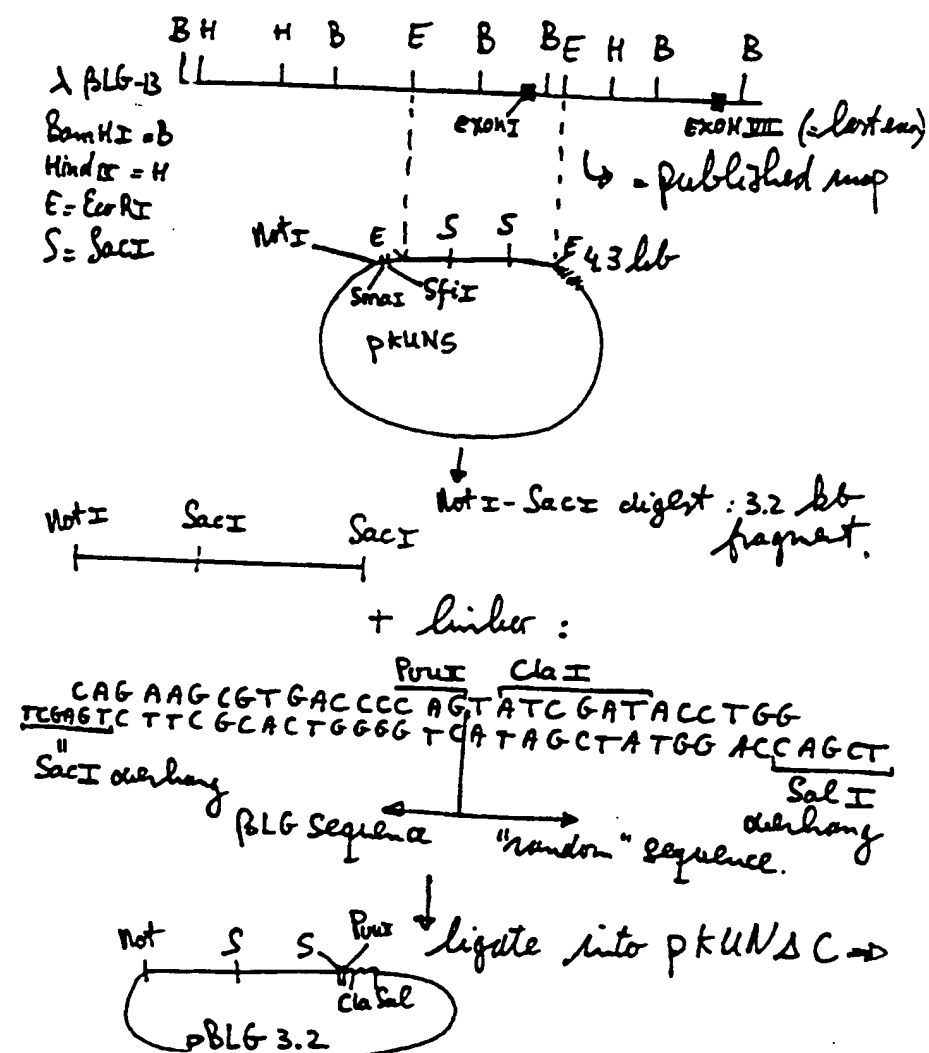 B H H B E B B E H B B
λ βLG-13
BamHI = B
Hind III = H
E = EcoRI
S = SacI
exon I
Exon VII (= last exon)
↳ = published map
NotI E S S E 4.3 kb
SmaI SfiI
pKUNS
NotI-SacI digest : 3.2 kb
fragment.
NotI SacI SacI
+ linker :
PvuI ClaI
CAG AAG CGT GACCCC AGT ATC GAT ACC TGG
TCGAGTC TTC GCACTGGGG TCA TAGCTA TGG ACC AGCT
"
SacI overhang
Sal I
overhang
βLG sequence
"random" sequence.
Not S S PvuI
ligate into pKUNΔC ⇒
Cla Sal
pBLG 3.2